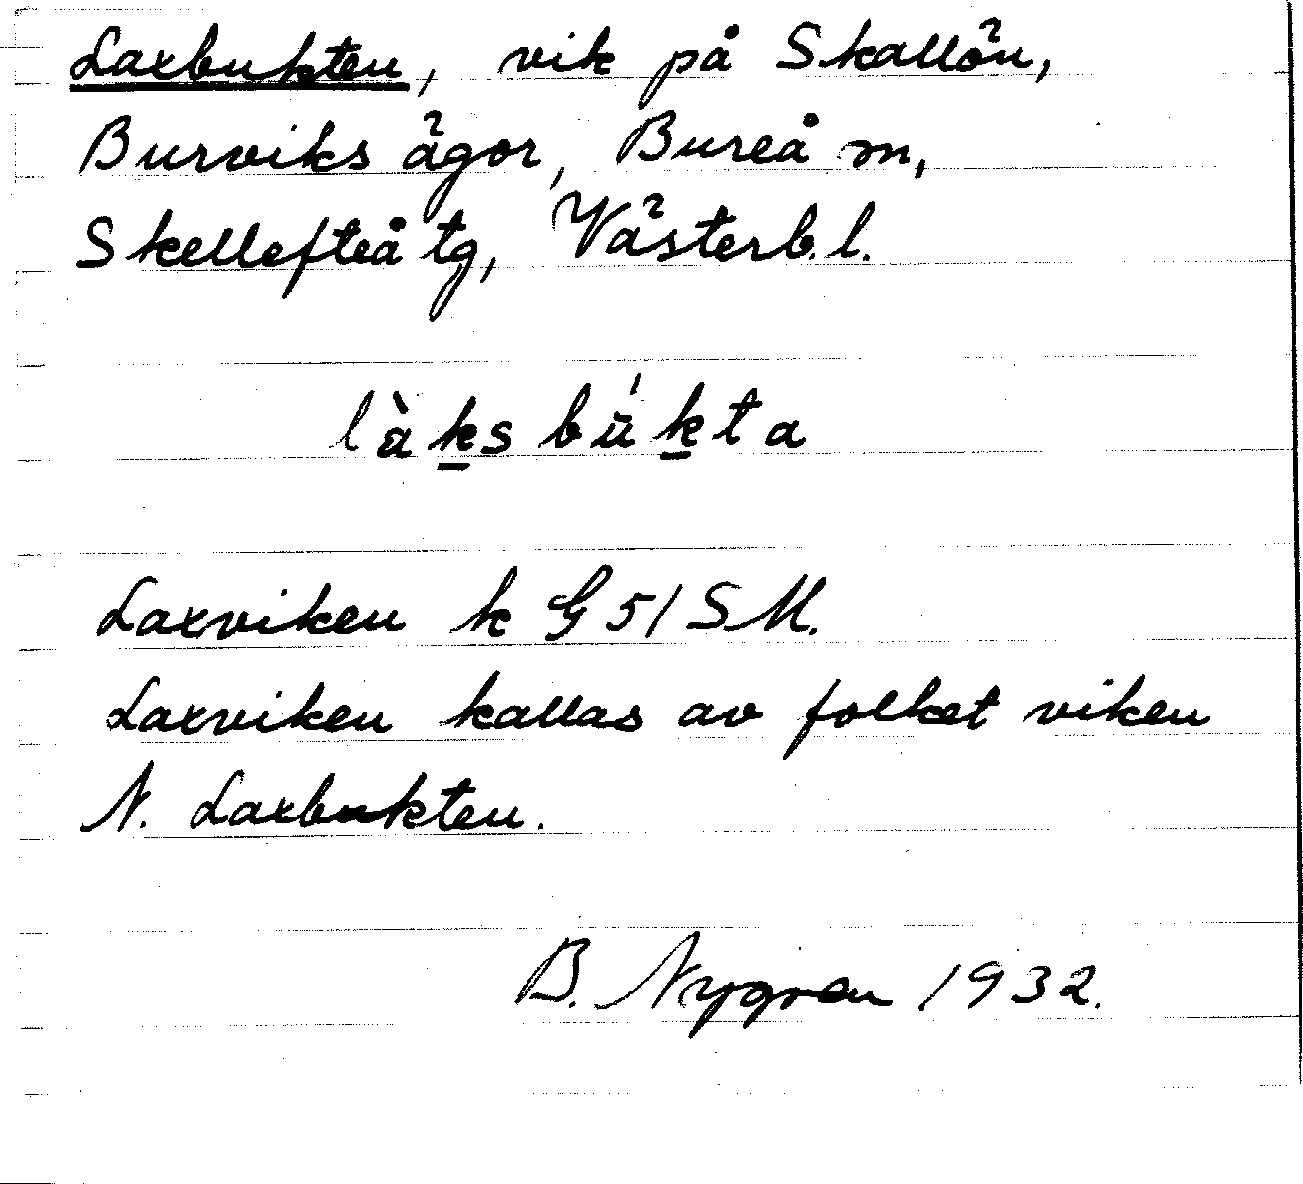 Laxbukten, vik på Skallön,
Burviks ägor, Bureå sn,
Skellefteå tg, Västerb. l.
làk̲s bú̈k̲ta
Laxviken k G 51 SM.
Laxviken kallas av folket viken
N. Laxbukten.
B. Nygren 1932.